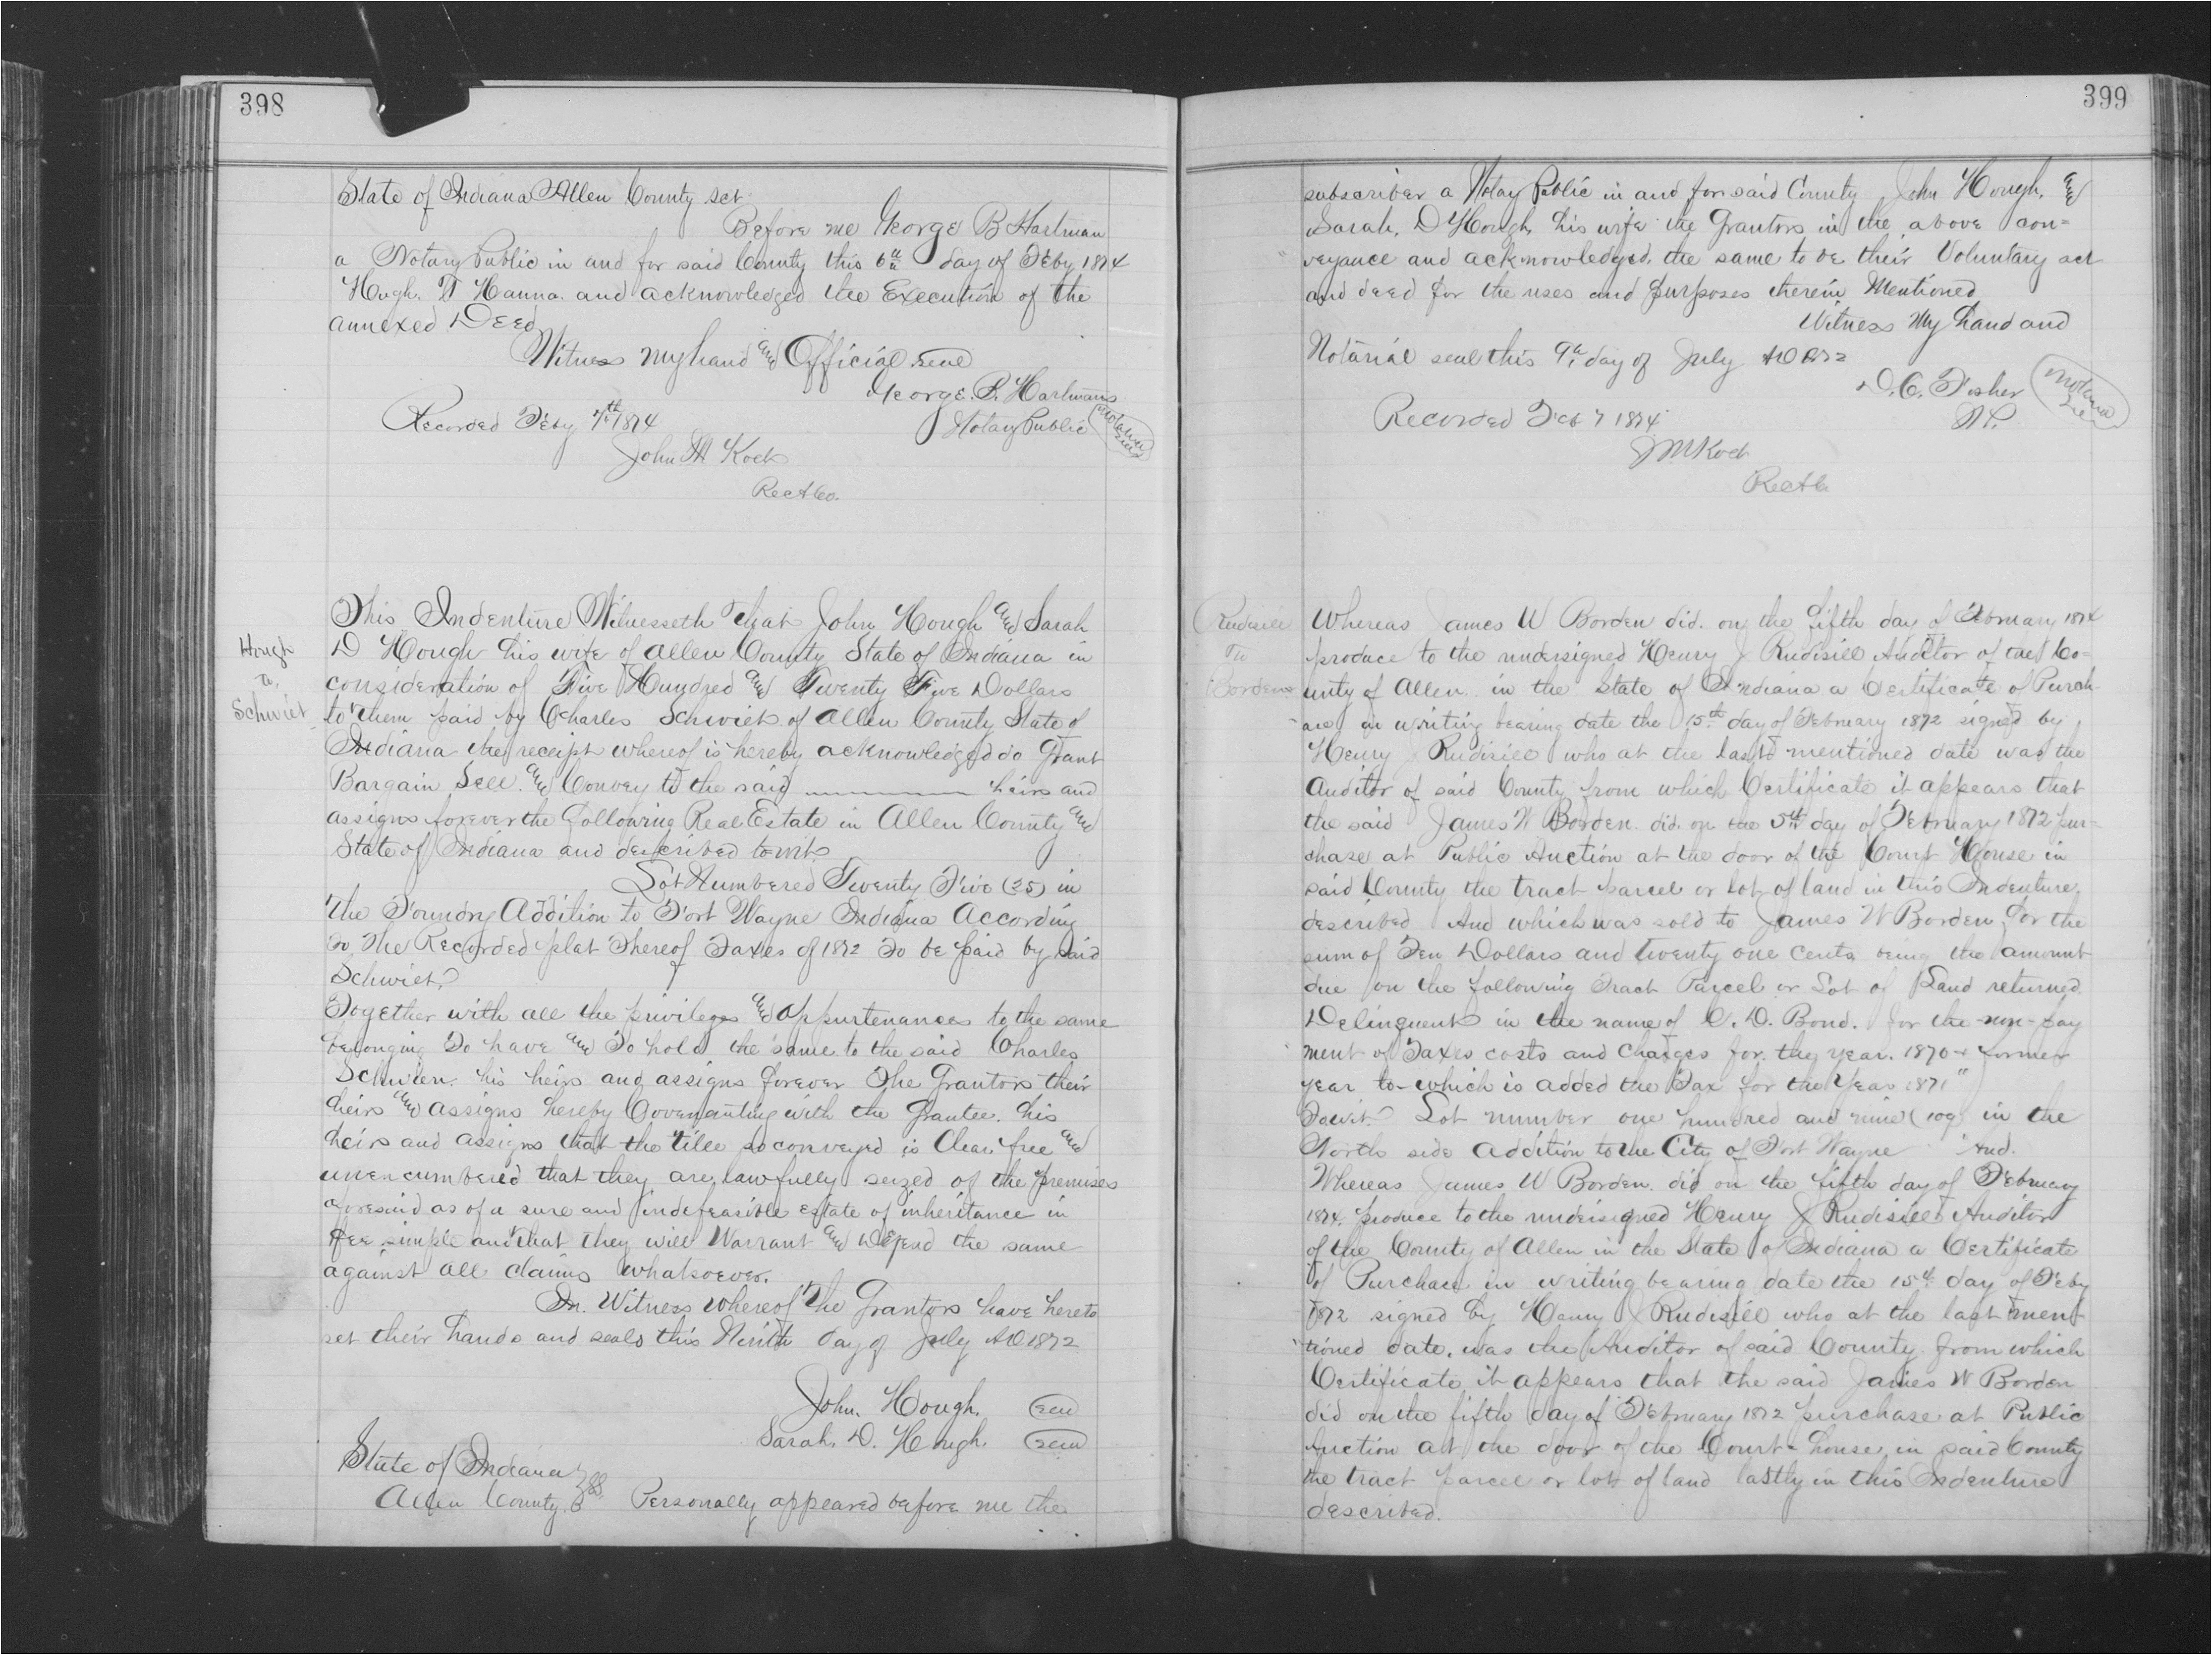 398
State of Indiana Allen County sct
Before me George B Hartman
a Notary Public in and for said County this 6th day of Feby 1874
Hugh T Hanna and acknowledged the Execution of the
annexed Deed
Witness my hand and Official seal
George B. Hartman
Notary Public
Notarial Seal
Recorded Feby 7th 1874
John M Koch
Rec A Co.
Hough
to
Schwiet
This Indenture Witnesseth that John Hough and Sarah
D Hough his wife of Allen County State of Indiana in
consideration of Five Hundred and Twenty Five Dollars
to them paid by Charles Schwiet of Allen County State of
Indiana the receipt whereof is hereby acknowledged do Grant
Bargain Sell and Convey to the said heirs and
assigns forever the following Real Estate in Allen County and
State of Indiana and described towit
Lot Numbered Twenty Five (25) in
the Foundry Addition to Fort Wayne Indiana According
to The Recorded plat Thereof Taxes of 1872 To be paid by said
Schwiet
Together with all the privileges and appurtenances to the same
belonging To have and To hold the same to the said Charles
his heirs and assigns forever The Grantors their
heirs and assigns hereby Covenanting with the Grantee. his
heirs and assigns that the title so conveyed is Clear, free and
unencumbered that they are lawfully seized of the premises
aforesaid as of a sure and indefeasible estate of inheritance in
Fee simple and that they will Warrant and Defend the same
against all claims whatsoever.
In Witness whereof The Grantors have hereto
set their hands and seals this Ninth day of July AD 1872
John. Hough. Seal
Sarah. D. Hough. Seal
State of Indiana
Allen County. } SS. Personally appeared before me the
399
subscriber a Notay Public in and for said County John Hough, and
Sarah, D Hough, his wife the Grantors in the above con=
veyance and acknowledged, the same to be their Voluntary act
and deed for the uses and purposes therein Mentioned
Witness My hand and
Notarial seal this 9th day of July AD 1872
D. C. Fisher
N P.
Recorded Feb 7 1874
J M Koch
Rec A C
Rudisill
To
Borden
Whereas James W Borden did. on the fifth day of February 1874
produce to the undersigned Henry J Rudisill Auditor of the Co=
unty of Allen in the State of Indiana a Certificate of Purch-
ase in writing bearing date the 15th day of February 1872 signed by
Henry J Rudisill who at the last mentioned date was the
Auditor of said County from which Certificate it appears that
the said James W Borden did. on the 5th day of February 1872 pur=
chase at Public Auction at the door of the Court House in
said County the tract parcel or lot of land in this Indenture
described And which was sold to James W Borden for the
sum of Ten Dollars and twenty one cents being the amount
due on the following Tract Parcel or Lot of Land returned
Delinquent in the name of C. D. Bond. for the non-pay
ment of Taxes costs and Charges for the year. 1870 + former
year to which is added the Tax for the Year 1871"
Towit. Lot number one hundred and nine (109 in the
North side Addition to the City of Fort Wayne And.
Whereas James W Borden. did on the fifth day of February
1874. produce to the undersigned Henry J Rudisill Auditor
of the County of Allen in the State of Indiana a Certificate
of Purchase in writing bearing date the 15th day of Feby
1872 signed by Henry J Rudisill who at the last men-
tioned date. was the Auditor of said County from which
Certificate it appears that the said James W Borden
did on the fifth day of February 1872 purchase at Public
Auction at the door of the Court-house in said County
the tract parcel or lot of land lastly in this Indenture
described.